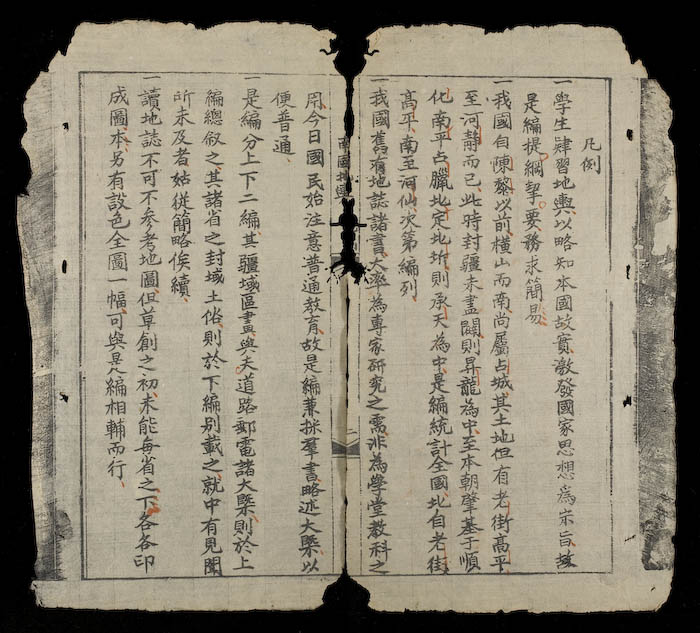 凡例
一學生肄習地輿以略知本國故實激發國家思想爲宗旨故
是編提綱挈要務求簡易
一我國自陳黎以前橫山而南尚屬占城其土地但有老街高平
至河靜而已此時封疆未盡闢則昇龍為中至本朝肇基于順
化南平占臘北定北圻則承天為中是編統計全國北自老街
高平南至河仙次第編列
一我國舊有地誌諸書大率為專家研究之需非為學堂教科之
南國地輿
二
用今日國民始注意普通教育故是編兼採羣書略述大槩以
便普通
一是編分上下二編其疆域區畫與夫道路郵電諸大槩則於上
編總叙之其諸省之封域土俗則於下編別載之就中有見聞
所未及者姑從簡略俟續
一讀地誌不可不參考地圖但草創之初未能每省之下各各印
成圖本另有設色全圖一幅可與是編相輔而行